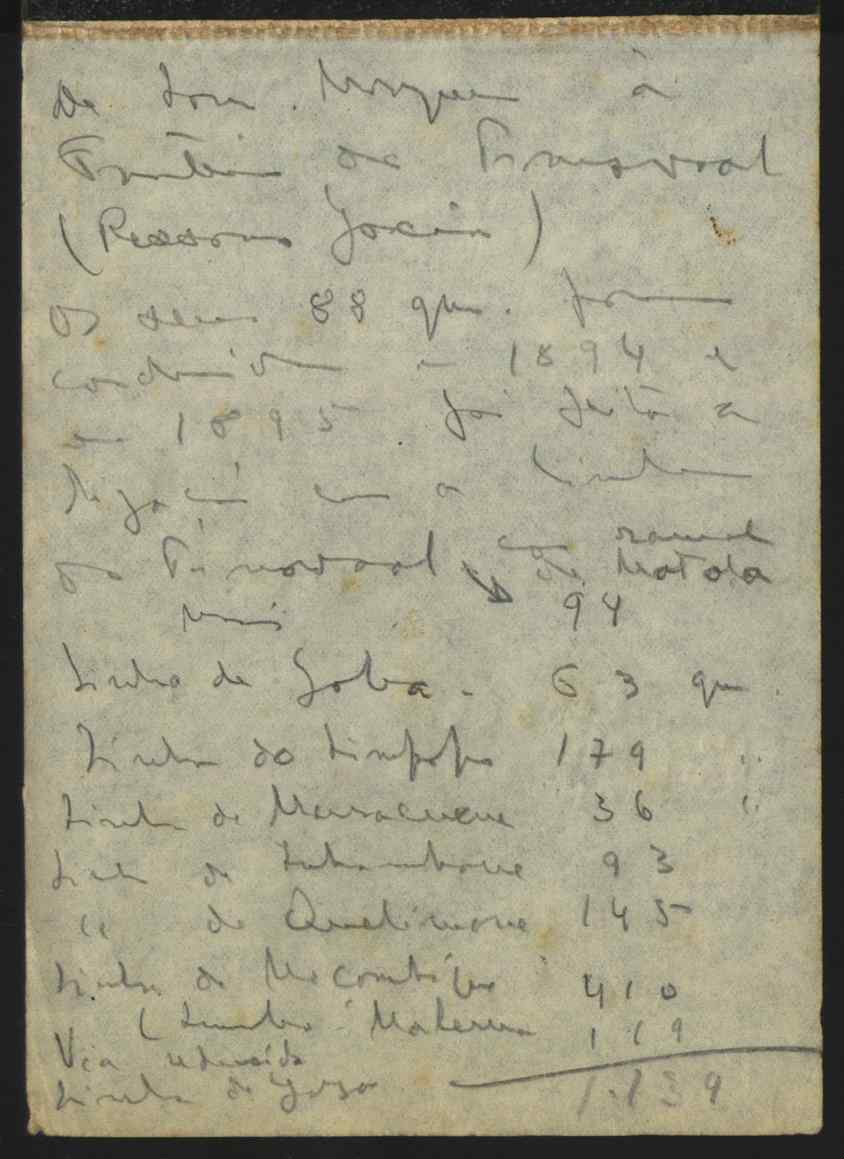 De Lour. Marques à
Fronteira do Transvaal
(Ressano Garcia)
Os seus 88 qm. foram
construidos em 1894 e
em 1895 foi feita a
ligação com a linha
do Transvaal com ramal
da Matola
mais 94
Linha de Goba. 63 qm.
Linha do Limpopo 179 "
Linha de Marracuene 36 "
Linha de Inhambane 93
" de Quelimane 145
Linha de Moçambique 410
(Lumbo - Malema 119
Via reduzida
Linha de Gaza 1.139